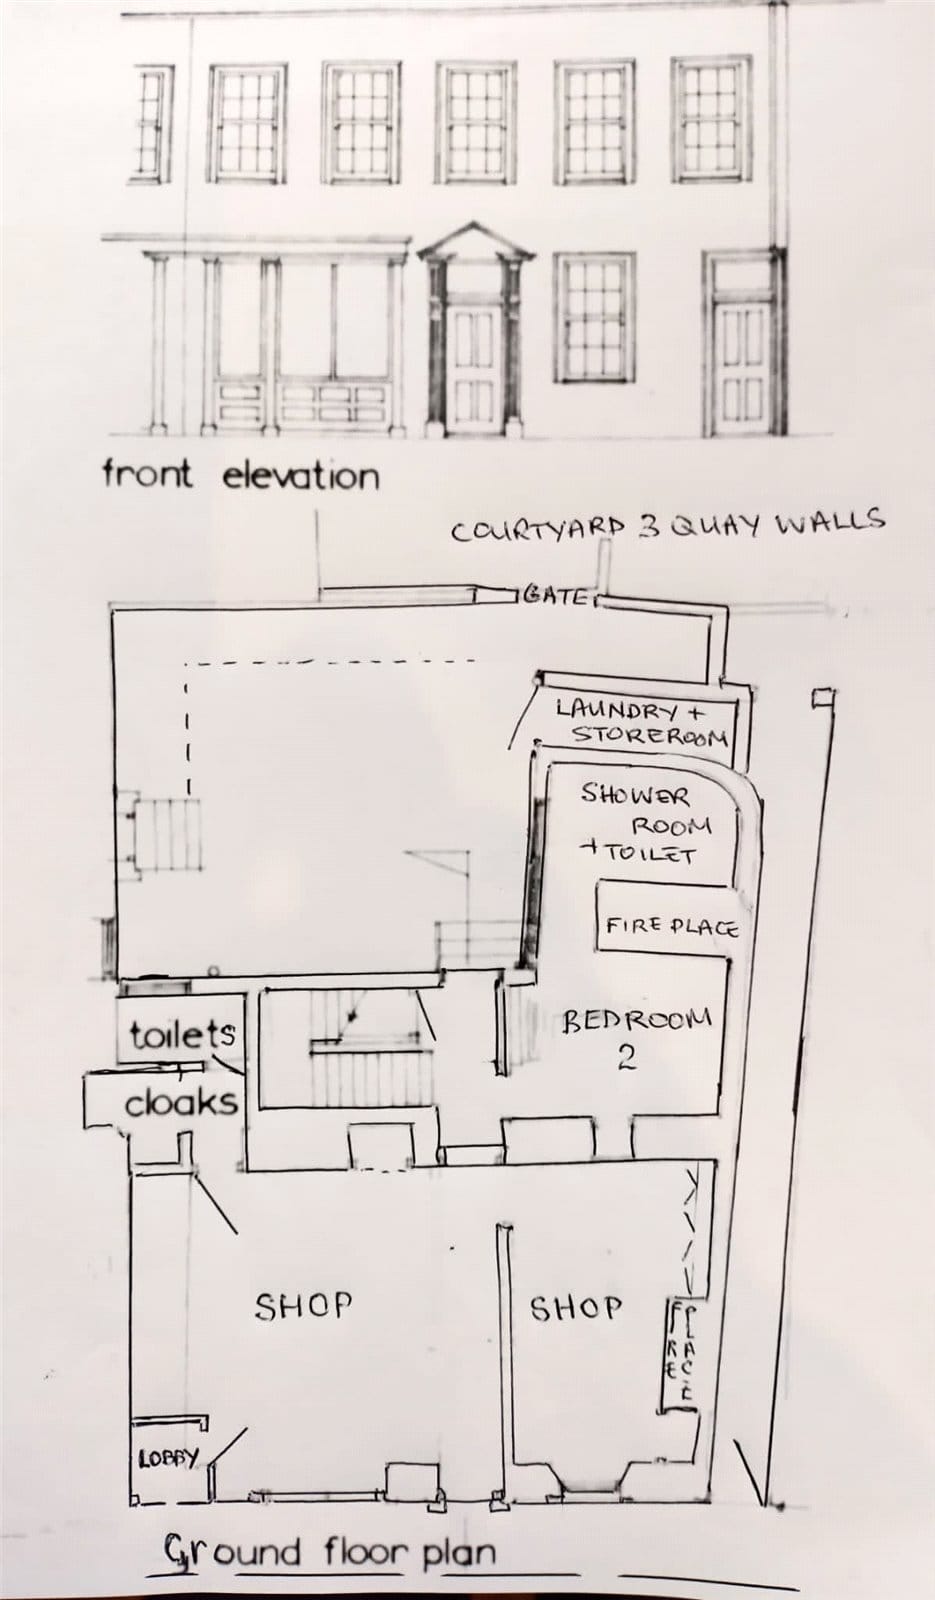 front elevation
COURTYARD 3 QUAY WALLS
GATE
LAUNDRY +
STOREROOM
SHOWER
ROOM
+ TOILET
FIRE PLACE
toilets
BEDROOM
2
cloaks
SHOP
SHOP
FIRE
PLACE
LOBBY
Ground floor plan